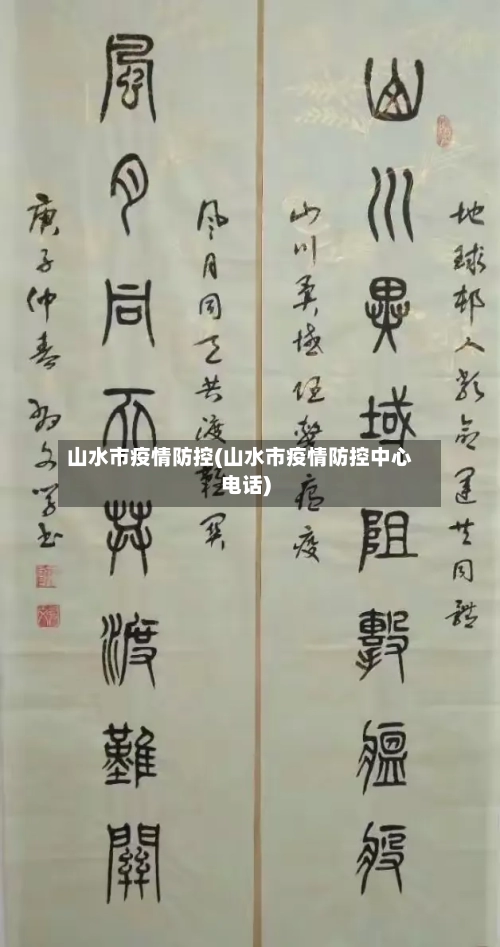 地球邨人類命運共同體
山川異域阻擊瘟疫
山川異域阻擊瘟疫
風月同天共渡難關
風月同天共渡難關
庚子仲春 文學書
山水市疫情防控(山水市疫情防控中心
电话)